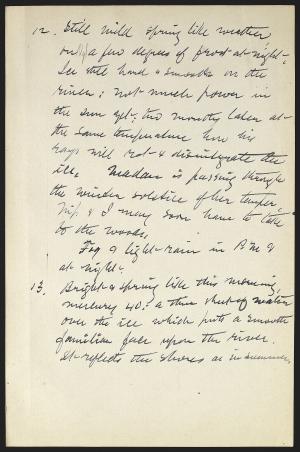 12. Still mild spring like weather
only a few degrees of frost at night.
Ice still hard & smooth on the
river: not much power in
the sun yet: two months later at
the same temperature how his
rays will rot & disintegrate the
ice. Madam is passing through
the winter solstice of her temper.
& I may soon have to take
to the woods.
Fog & light rain in P.M. &
at night.
13. Bright & spring like this morning,
mercury 40: a thin sheet of water
over the ice which puts a smooth
familiar face upon the river.
It reflects the shores as in summer.